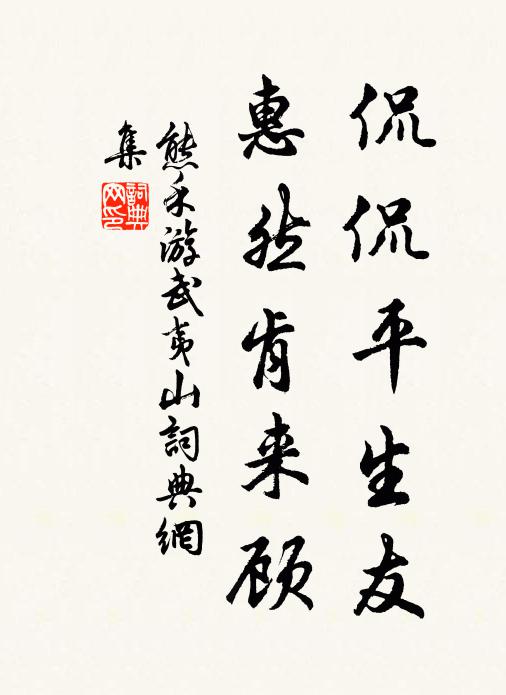 侃侃平生友
惠然肯来顾
熊禾游武夷山詞典網
集
詞典网印